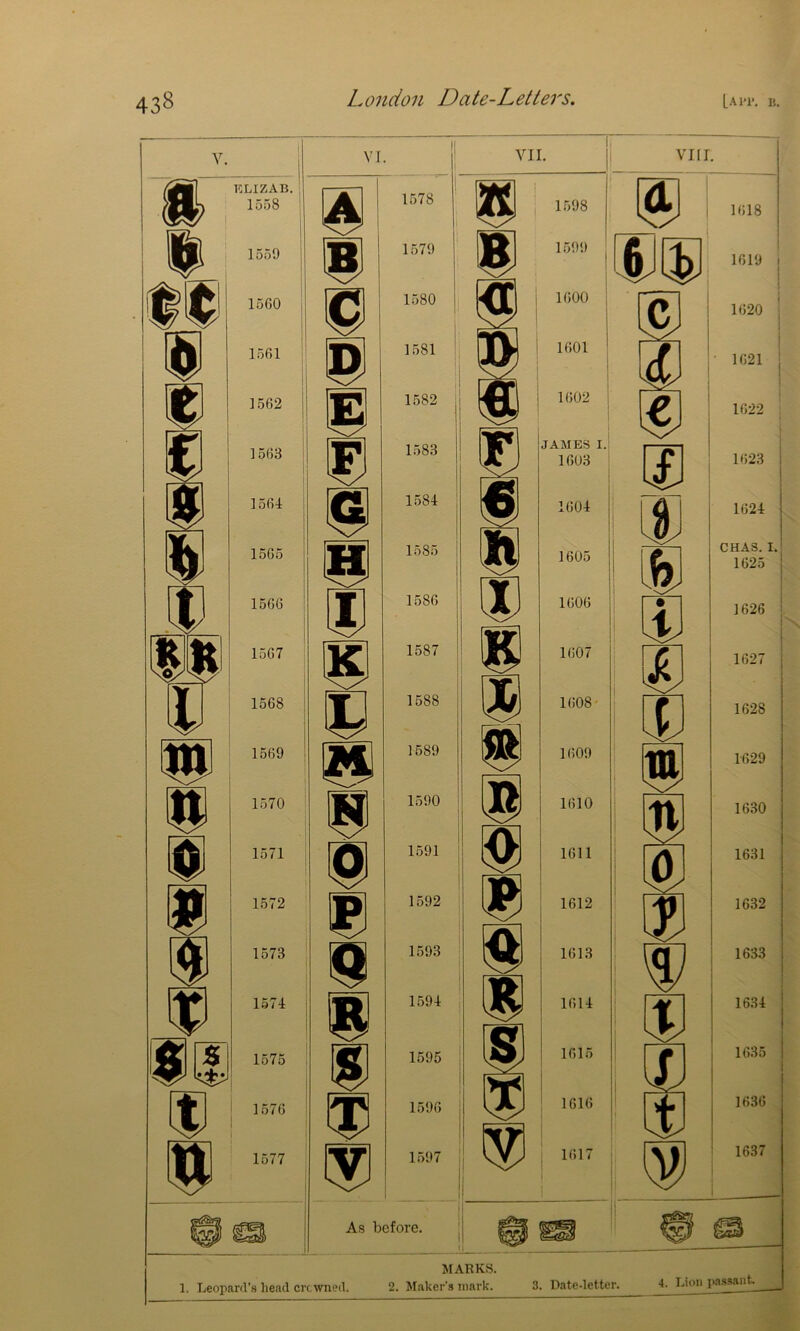 438 London Date-Letters. [APP. B.
V. VI. VII. VIII.
a ELIZAB. 1558 A 1578 A 1598 a 1618
b 1559 B 1579 B 1599 b b 1619
c c 1560 C 1580 C 1600 c 1620
d 1561 D 1581 D 1601 d 1621
e 1562 E 1582 E 1602 e 1622
f 1563 F 1583 F JAMES I. 1603 f 1623
g 1564 G 1584 G 1604 g 1624
h 1565 H 1585 h 1605 h CHAS. I. 1625
i 1566 I 1586 I 1606 i 1626
k k 1567 K 1587 K 1607 k 1627
l 1568 L 1588 L 1608 l 1628
m 1569 M 1589 M 1609 m 1629
n 1570 N 1590 n 1610 n 1630
o 1571 O 1591 O 1611 o 1631
p 1572 P 1592 P 1612 p 1632
q 1573 Q 1593 Q 1613 q 1633
r 1574 R 1594 R 1614 r 1634
s s 1575 S 1595 S 1615 s 1635
t 1576 T 1596 T 1616 t 1636
u 1577 V 1597 V 1617 v 1637
As before.
MARKS.
1. Leopard's head crowned. 2. Maker's mark. 3. Date-letter. 4. Lion passant.